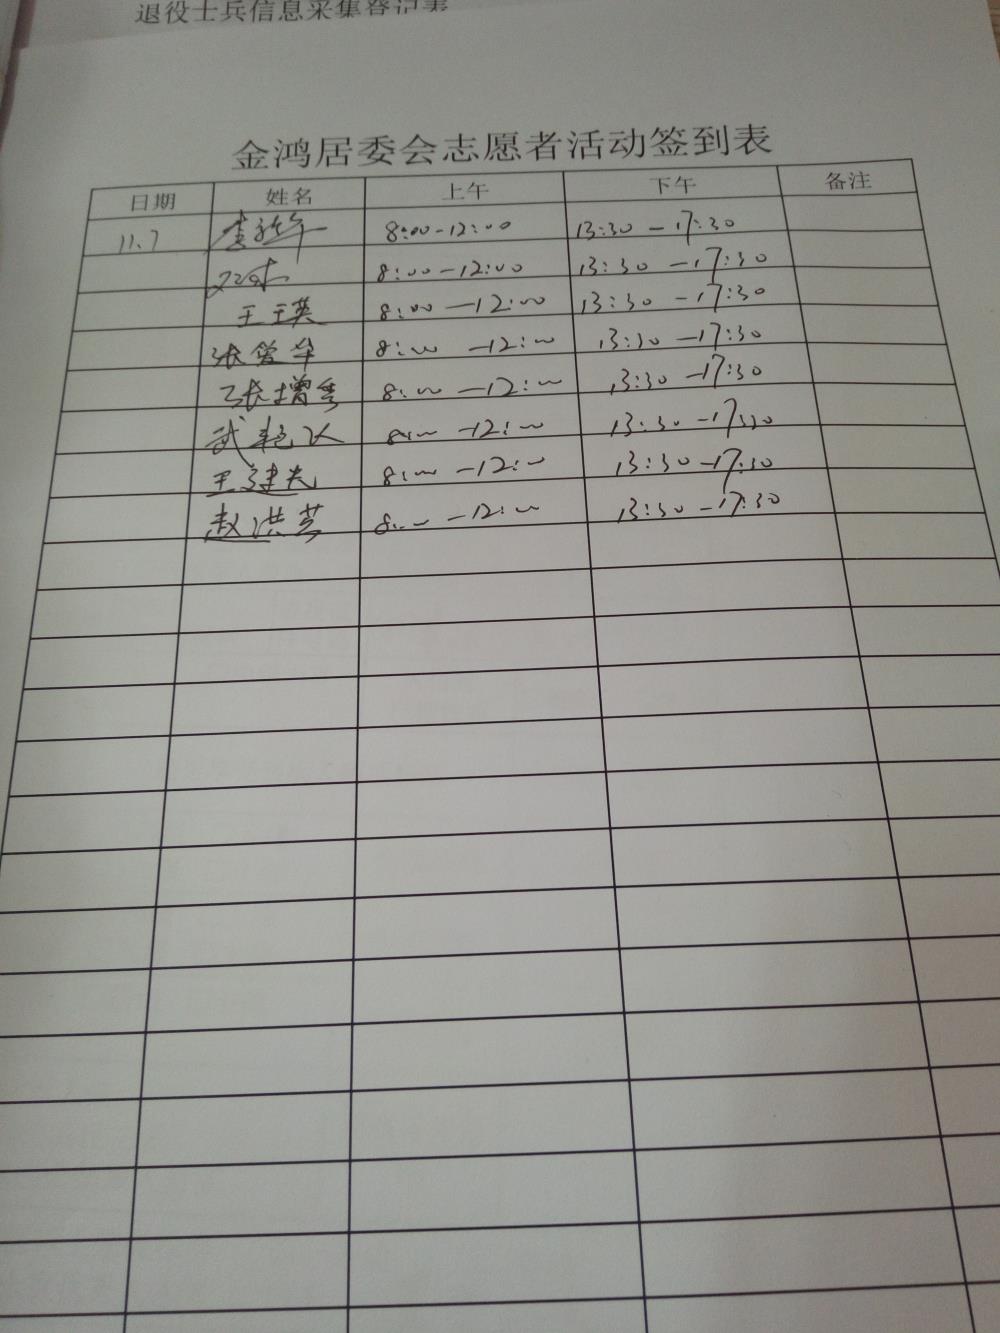 退役士兵信息采集登记表
金鸿居委会志愿者活动签到表
日期 姓名 上午 下午 备注
11.7 8:00-12:00 13:30-17:30
8:00-12:00 13:30-17:30
王玉英 8:00-12:00 13:30-17:30
张曾华 8:00-12:00 13:30-17:30
张增秀 8:00-12:00 13:30-17:30
武 8:00-12:00 13:30-17:30
王建光 8:00-12:00 13:30-17:30
赵洪芸 8:00-12:00 13:30-17:30